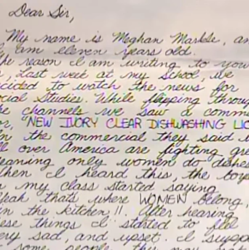 Dear Sir,
My name is Meghan Markle, and
I am eleven years old.
The reason I am writing to you
is, Last week at my school, we
decided to watch the news for
social studies. While flipping through
the channels we saw a comm
"NEW IVORY CLEAR DISHWASHING LIQ
the commercial they said w
all over America are fighting gr
meaning only women do dishes
When I heard this, the boys
in my class started saying
Yeah that's where WOMEN belong,
in the kitchen!!. After hearing
these things I started to fe
very sad, and upset. I su